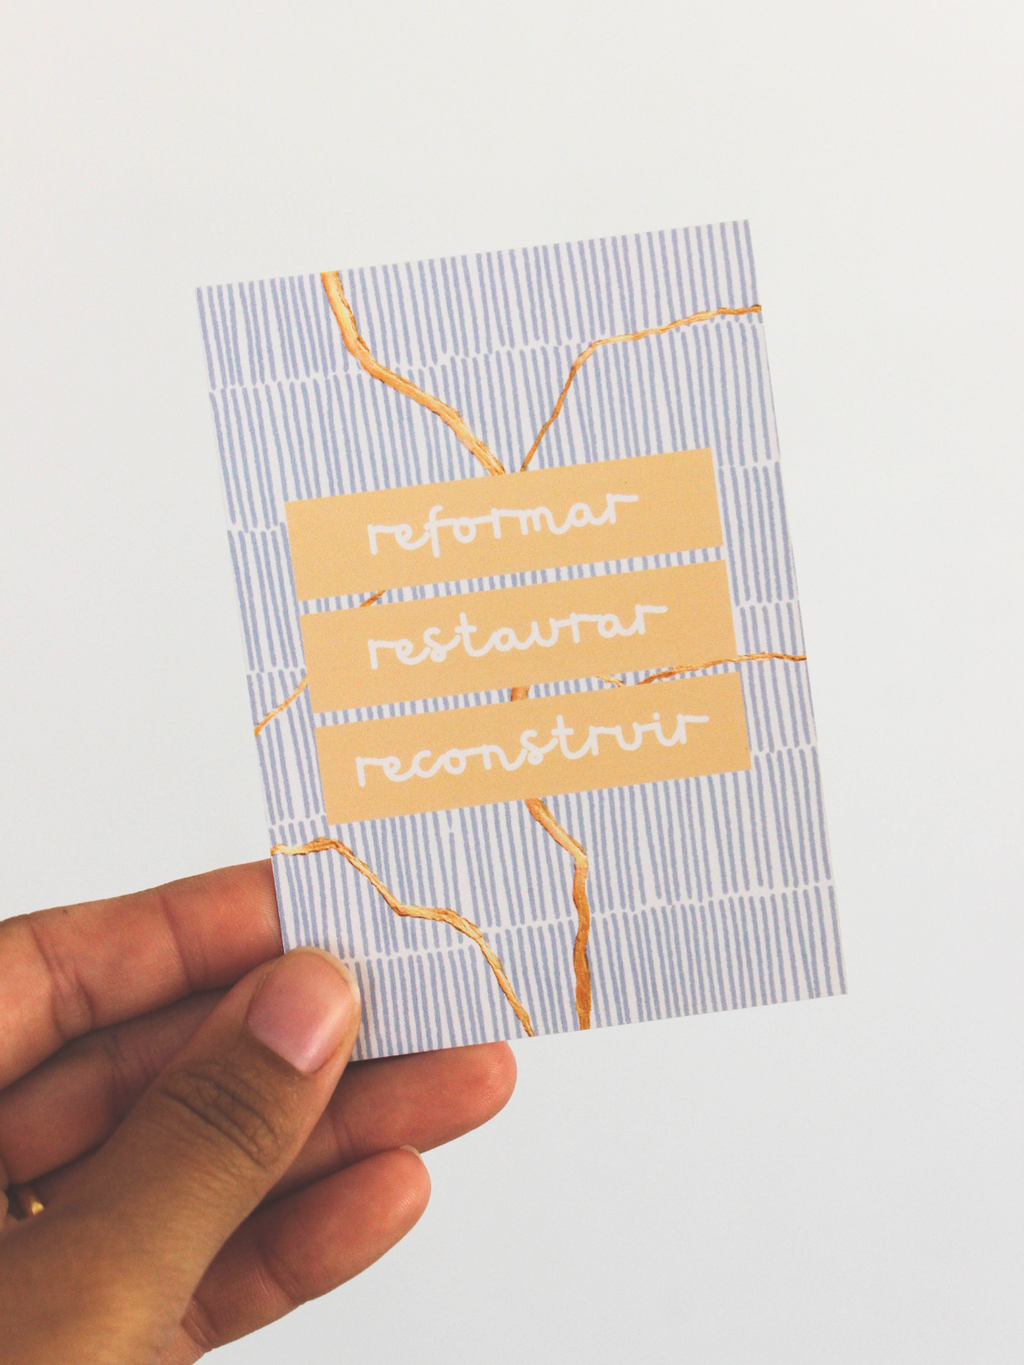 reformar
restaurar
reconstruir